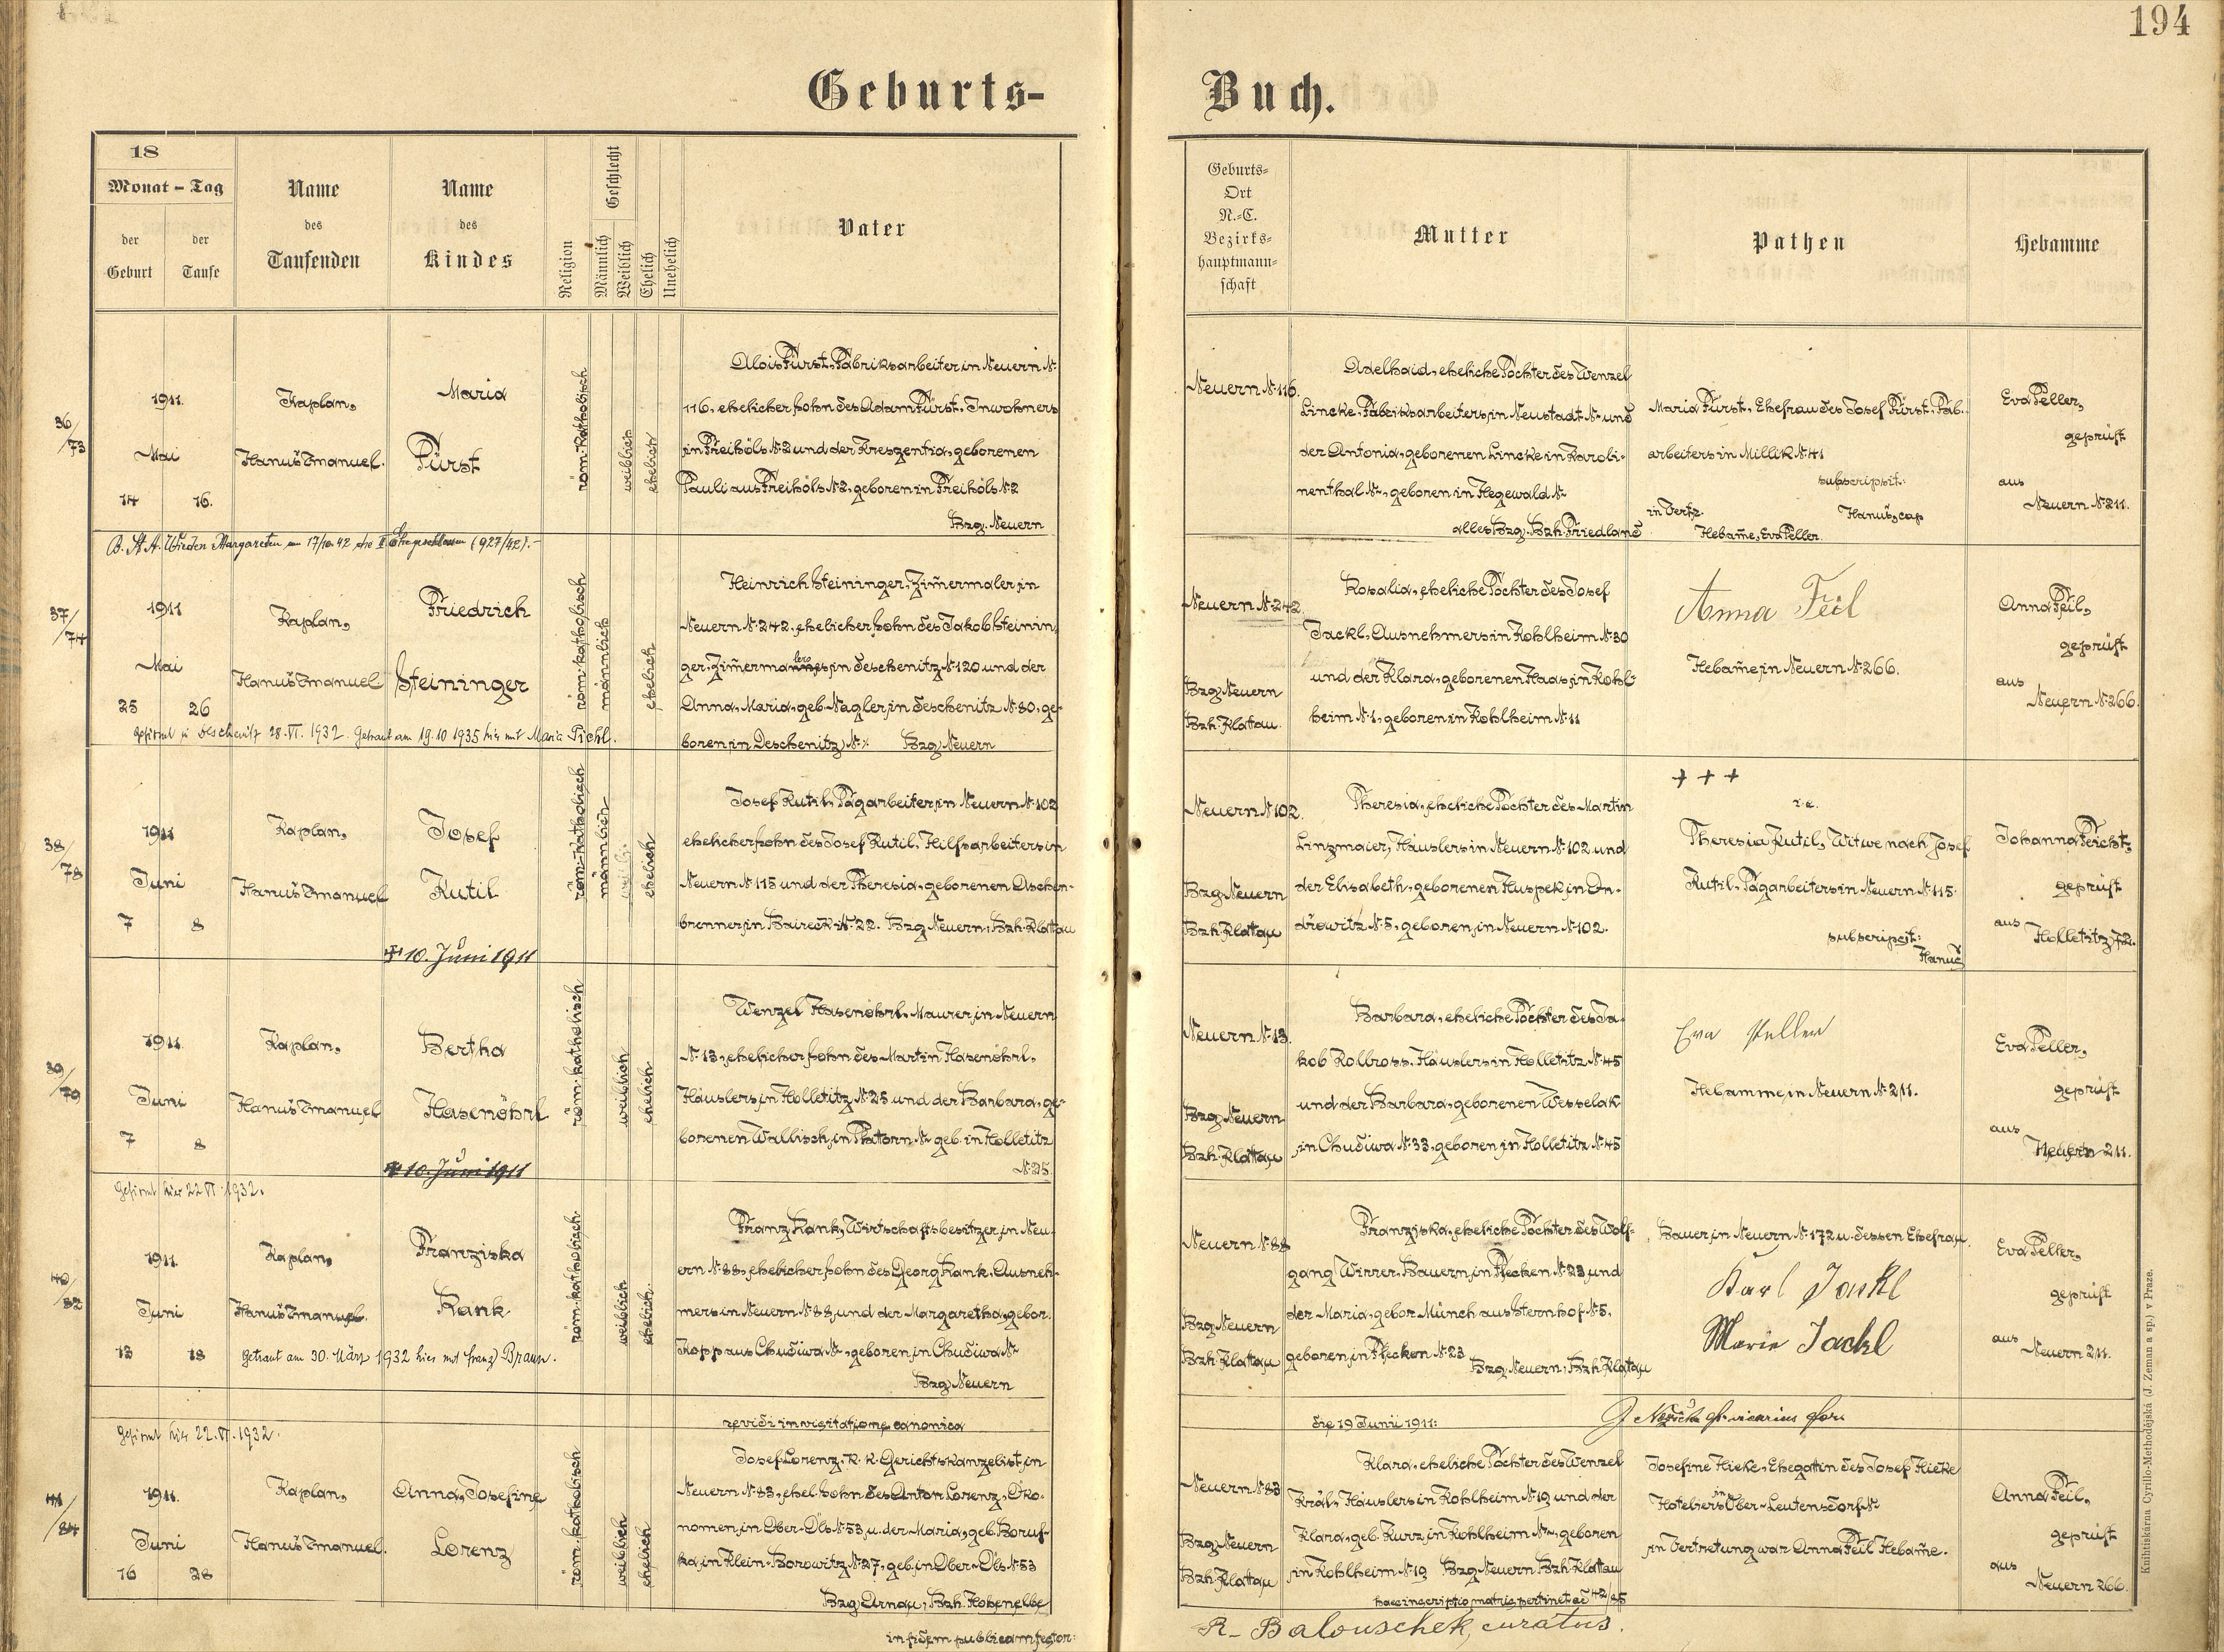 194
Geburts-
Buch.
18
Monat - Tag
der Geburt
der Taufe
Name des Taufenden
Name des Kindes
Religion
Geschlecht
Männlich
Weiblich
Ehelich
Unehelich
Vater
Geburts-
Ort
N.-C.
Bezirks-
hauptmann-
schaft
Mutter
Pathen
Hebamme
36/73
1911.
Mai
14 16.
Kaplan,
Hanuš Emanuel.
Maria
Fürst
röm. katholisch
weiblich
ehelich
Alois Fürst, Fabriksarbeiter in Neuern N.
116, ehelicher Sohn des Adam Fürst, Inwohners
in Freihöls N. 2 und der Kreszentia, geborenen
Pauli aus Freihöls N. 2, geboren in Freihöls N. 2
Bzg. Neuern
Neuern N. 116.
Adelhaid, eheliche Tochter des Wenzel
Lincke, Fabriksarbeiters in Neustadt N. und
der Antonia, geborenen Lincke in Karoli-
nenthal N., geboren in Hegewald N.
alles Bzg. Bzh. Friedland
Maria Fürst, Ehefrau des Josef Fürst, Fab.
arbeiters in Millik N. 41
subscripsit:
in Vertr. Hanuš, cap
Hebam̄e, Eva Peller.
Eva Peller,
geprüft
aus
Neuern N. 211.
B. St. A. Wieden Margareten am 17/10.42 die II Ehe geschlossen (927/42).-
37/74
1911
Mai
25 26
Kaplan,
Hanuš Emanuel
Friedrich
Steininger
röm. katholisch
männlich
ehelich
Heinrich Steininger, Zim̄ermaler in
Neuern N. 242, ehelicher Sohn des Jakob Steinin-
ger, Zim̄ermalers in Deschenitz N. 120 und der
Anna, Maria, geb. Nagler, in Deschenitz N. 80, ge-
boren in Deschenitz N. % Bzg Neuern
Neuern N. 242.
Bzg Neuern
Bzh. Klatau.
Rosalia, eheliche Tochter des Josef
Jackl, Ausnehmers in Kohlheim N. 30
und der Klara, geborenen Haas, in Kohl-
heim N. 1, geboren in Kohlheim N. 11
Anna Feil
Hebam̄e, in Neuern N. 266.
Anna Feil,
geprüft
aus
Neuern N. 266.
Gefirmt in Deschenitz 28. VI. 1932. Getraut am 19.10 1935 hier mit Maria Pichl.
38/78
1911
Juni
7 8
Kaplan,
Hanuš Emanuel
Josef
Kutil
✝ 10. Juni 1911
röm. katholisch
männlich
ehelich
Josef Kutil, Tagarbeiter, in Neuern N. 102
ehelicher Sohn des Josef Kutil, Hilfsarbeiters in
Neuern N. 115 und der Theresia, geborenen Aschen-
brenner, in Baireck N. 22. Bzg Neuern, Bzh. Klatau
Neuern N. 102.
Bzg Neuern
Bzh. Klatau
Theresia, eheliche Tochter des Martin
Linzmaier, Häuslers in Neuern N. 102 und
der Elisabeth, geborenen Huspek, in On-
dřowitz N. 5, geboren in Neuern N. 102.
+ + +
i. e.
Theresia Kutil, Witwe nach Josef
Kutil, Tagarbeiters in Neuern N. 115.
subscripsit:
Hanuš
Johanna Feicht,
geprüft
aus
Holletitz, 72.
39/79
1911.
Juni
7 8
Kaplan,
Hanuš Emanuel
Bertha
Hasenöhrl
✝ 10. Juni 1911
röm. katholisch
weiblich
ehelich
Wenzel Hasenöhrl, Maurer, in Neuern
N. 13, ehelicher Sohn des Martin Hasenöhrl,
Häuslers in Holletitz N. 25 und der Barbara, ge-
borenen Wallisch, in Phatorn N. geb. in Holletitz
N. 25.
Neuern N. 13.
Bzg Neuern
Bzh. Klatau
Barbara, eheliche Tochter des Ja-
kob Kollross, Häuslers in Holletitz N. 45
und der Barbara, geborenen Wesselak
in Chudiwa N. 33, geboren in Holletitz N. 45
Eva Peller
Hebamme, in Neuern N. 211.
Eva Peller,
geprüft
aus
Neuern 211.
Gefirmt hier 22 VI. 1932.
40/82
1911.
Juni
13 18
Kaplan,
Hanuš Emanuel.
Franziska
Rank
röm. katholisch
weiblich
ehelich.
Franz Rank, Wirtschaftsbesitzer, in Neu-
ern N. 88, ehelicher Sohn des Georg Rank, Ausneh-
mers in Neuern N. 88, und der Margaretha, gebor.
Kopp aus Chudiwa N., geboren, in Chudiwa N.
Bzg Neuern
Getraut am 30. März 1932 hier mit Franz Braun.
Neuern N. 88
Bzg Neuern
Bzh. Klatau
Franziska, eheliche Tochter des Wolf-
gang Wirrer, Bauern, in Flecken N. 23 und
der Maria, gebor. Münch aus Sternhof N. 5,
geboren, in Flecken N. 23
Bzg. Neuern, Bzh. Klatau
Bauer, in Neuern N. 172 u. dessen Ehefrau.
Karl Jackl
Marie Jackl
Eva Peller,
geprüft
aus
Neuern 211.
revidi in visitatione canonica
die 19 Junii 1911:
Gefirmt hier 22. VI. 1932.
41/84
1911.
Juni
16 28
Kaplan,
Hanuš Emanuel.
Anna, Josefine
Lorenz
röm. katholisch
weiblich
ehelich
Josef Lorenz, k. k. Gerichtskanzelist, in
Neuern N. 83, ehel. Sohn des Anton Lorenz, Öko-
nomen, in Ober-Öls N. 53, u. der Maria, geb. Boruf-
ka, in Klein-Borowitz N. 27, geb. in Ober-Öls N. 53
Bzg Arnau, Bzh. Hohenelbe
Neuern N. 83
Bzg Neuern
Bzh. Klattau
Klara, eheliche Tochter des Wenzel
Král, Häuslers in Kohlheim N. 19 und der
Klara, geb. Kurz, in Kohlheim N., geboren
in Kohlheim N. 19 Bzg Neuern Bzh Klattau
haec inscriptio matris pertinet ad 42/85
Josefine Hieke, Ehegattin des Josef Hieke
Hoteliers in Ober-Leutensdorf N.
in Vertretung war Anna Feil Hebam̄e.
Anna Feil,
geprüft
aus
Neuern 266.
in fidem publicam testor:
R. Balouschek, curatus.
Knihtiskárna Cyrillo-Methodějská (J. Zeman a sp.) v Praze.